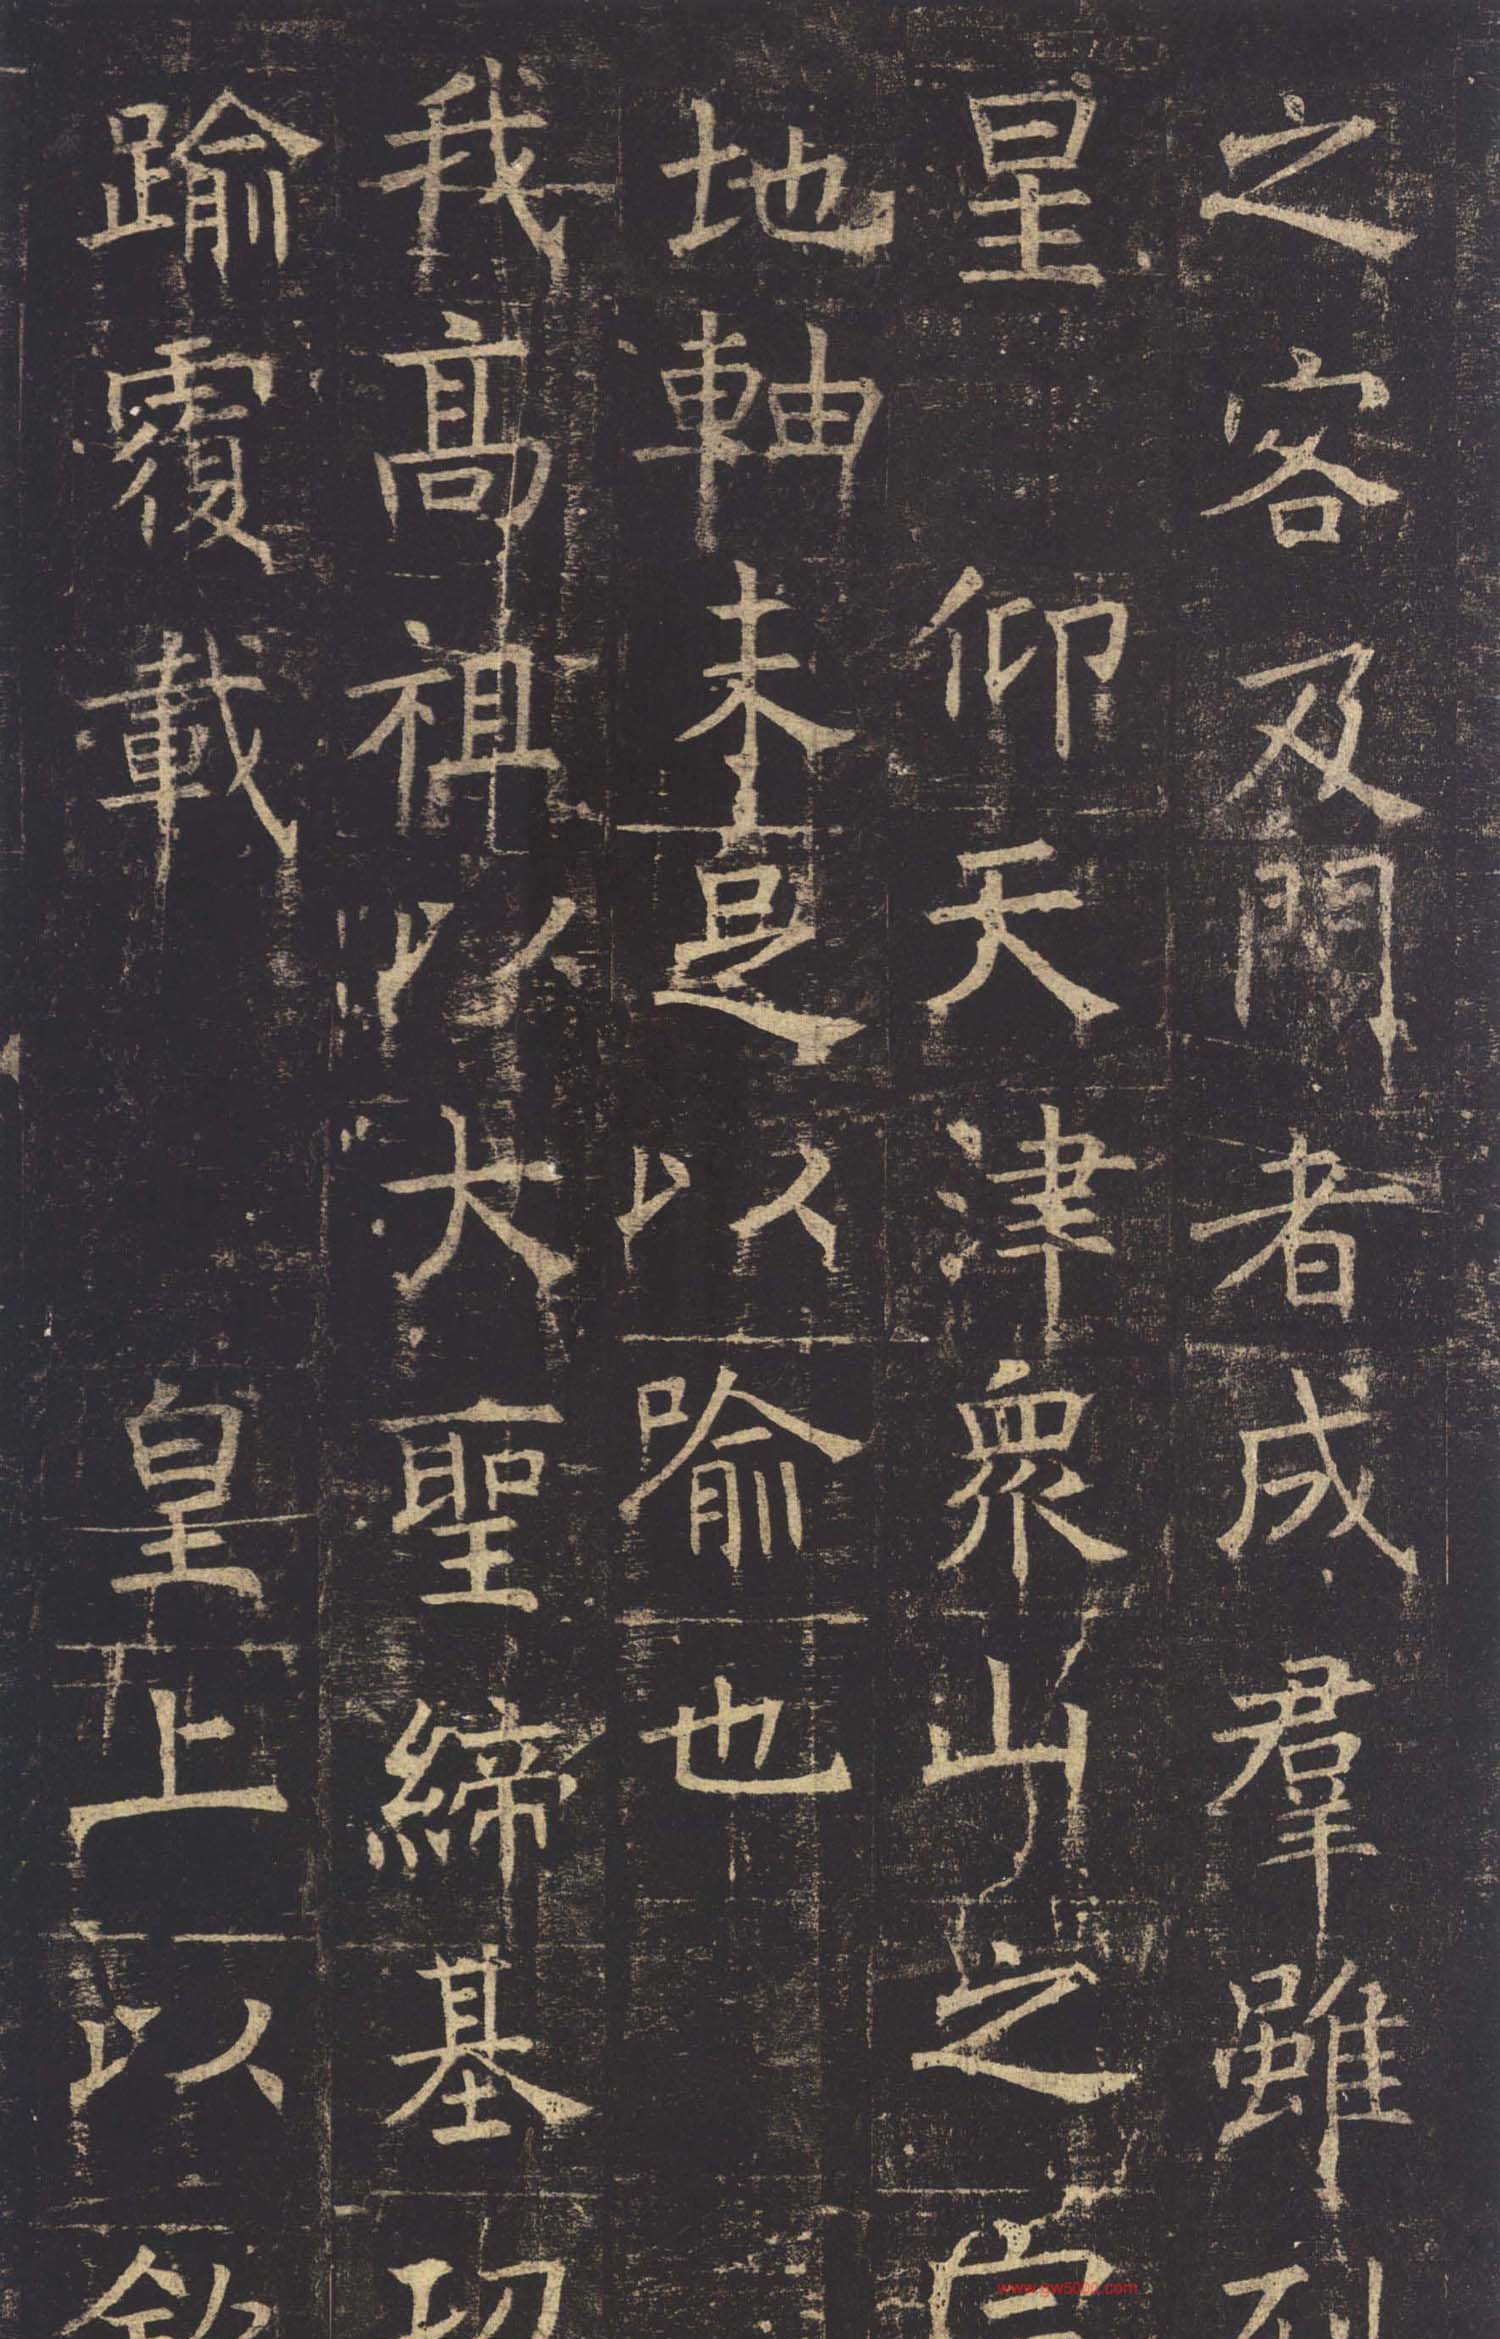 之客及門者成羣雖列
星 仰天津衆山之宗
地軸未足以喻也
我高祖以大聖締基功
踰覆載 皇上以欽
www.gw5000.com